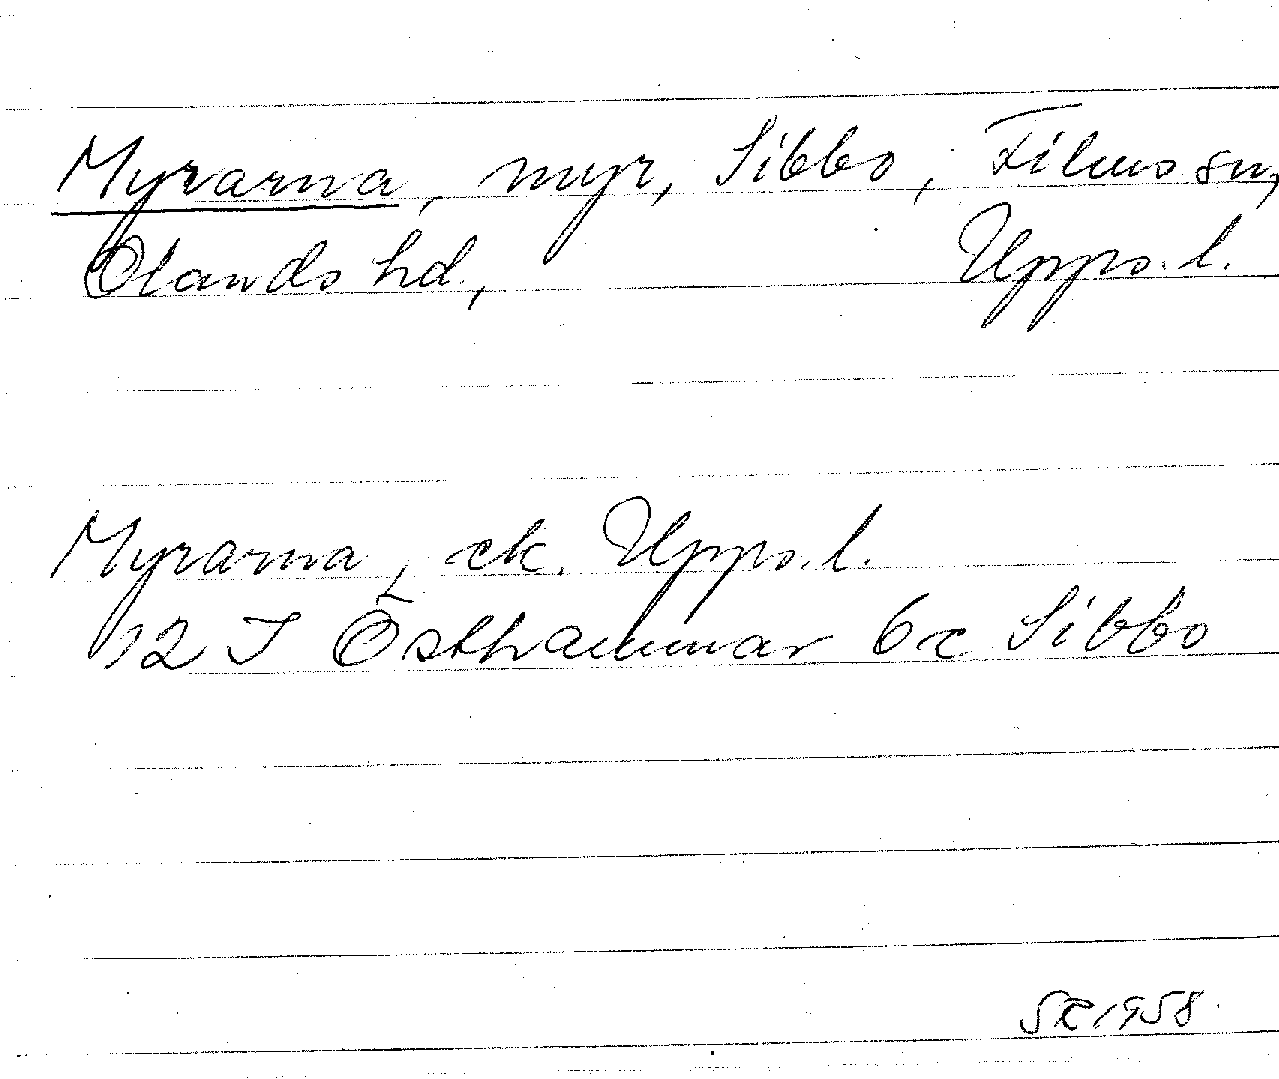 Myrarna, myr, Sibbo, Films sn,
Olands hd., Upps. l.
Myrarna, ek. Upps. l.
12 I Östhammar 6c Sibbo
SR 1958